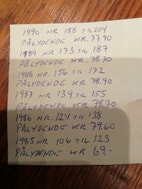 1990 NR 188 TIL 204
PÅLYDENDE KR. 77.70
1989 NR. 173 TIL 187
PÅLYDENDE KR. 78.70
1988 NR. 156 TIL 172
PÅLYDENDE KR. 78.90
1987 NR 139 TIL 155
PÅLYDENDE KR. 78.70
1986 NR. 124 TIL 138
PÅLYDENDE KR. 79.60
1985 NR 106 TIL 123
PÅLYDENDE KR 69.-